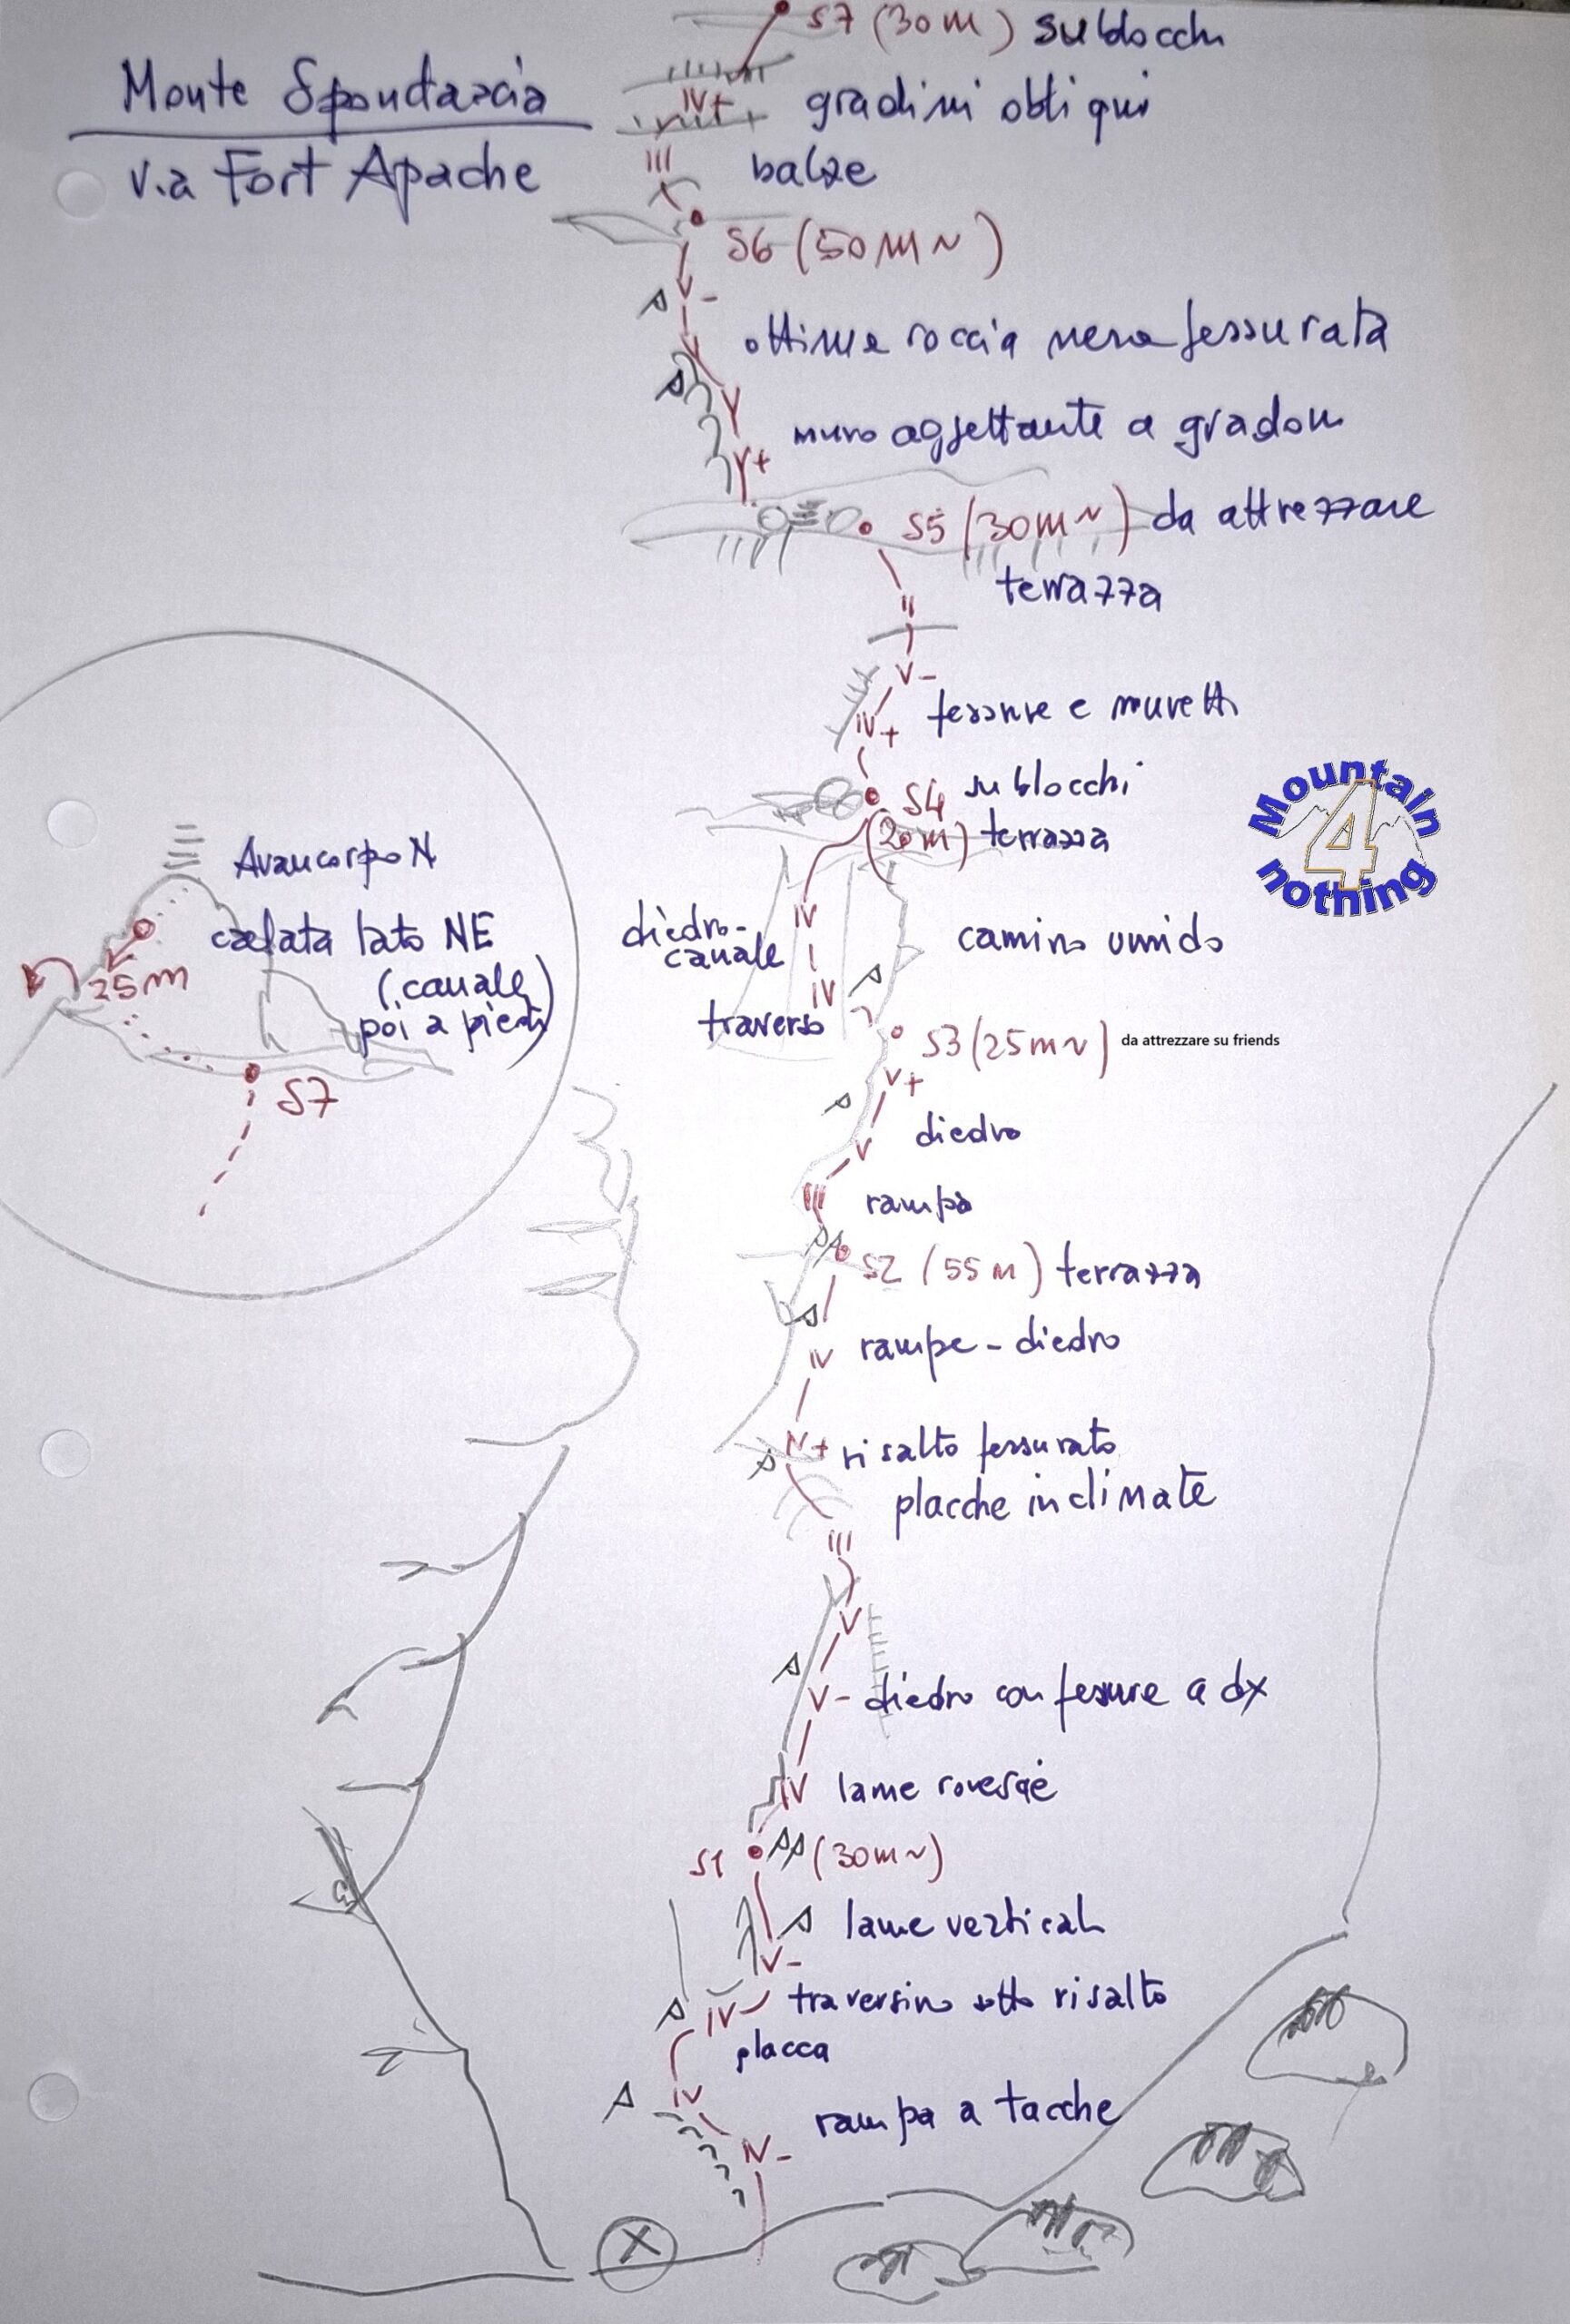 S7 (30m) su blocchi
Monte Spondascia
via Fort Apache
IV+ gradini obliqui
III balze
S6 (50m~)
V-
ottima roccia nera fessurata
V
V
muro aggettante a gradoni
V+
S5 (30m~) da attrezzare
terrazza
II
V-
fessure e muretti
IV+
su blocchi
S4
(20m) terrazza
Mountain
4
nothing
Avancorpo N
calata lato NE
(canale
poi a piedi)
25m
S7
IV
diedro-
canale
camino umido
IV
traverso
S3 (25m~) da attrezzare su friends
V+
diedro
V
III rampa
S2 (55m) terrazza
IV rampe-diedro
IV+ risalto fessurato
placche inclinate
III
V
V- diedro con fessure a dx
IV lame rovesce
S1 (30m~)
lame verticali
V-
IV traversino sotto risalto
placca
IV
rampa a tacche
IV-
X